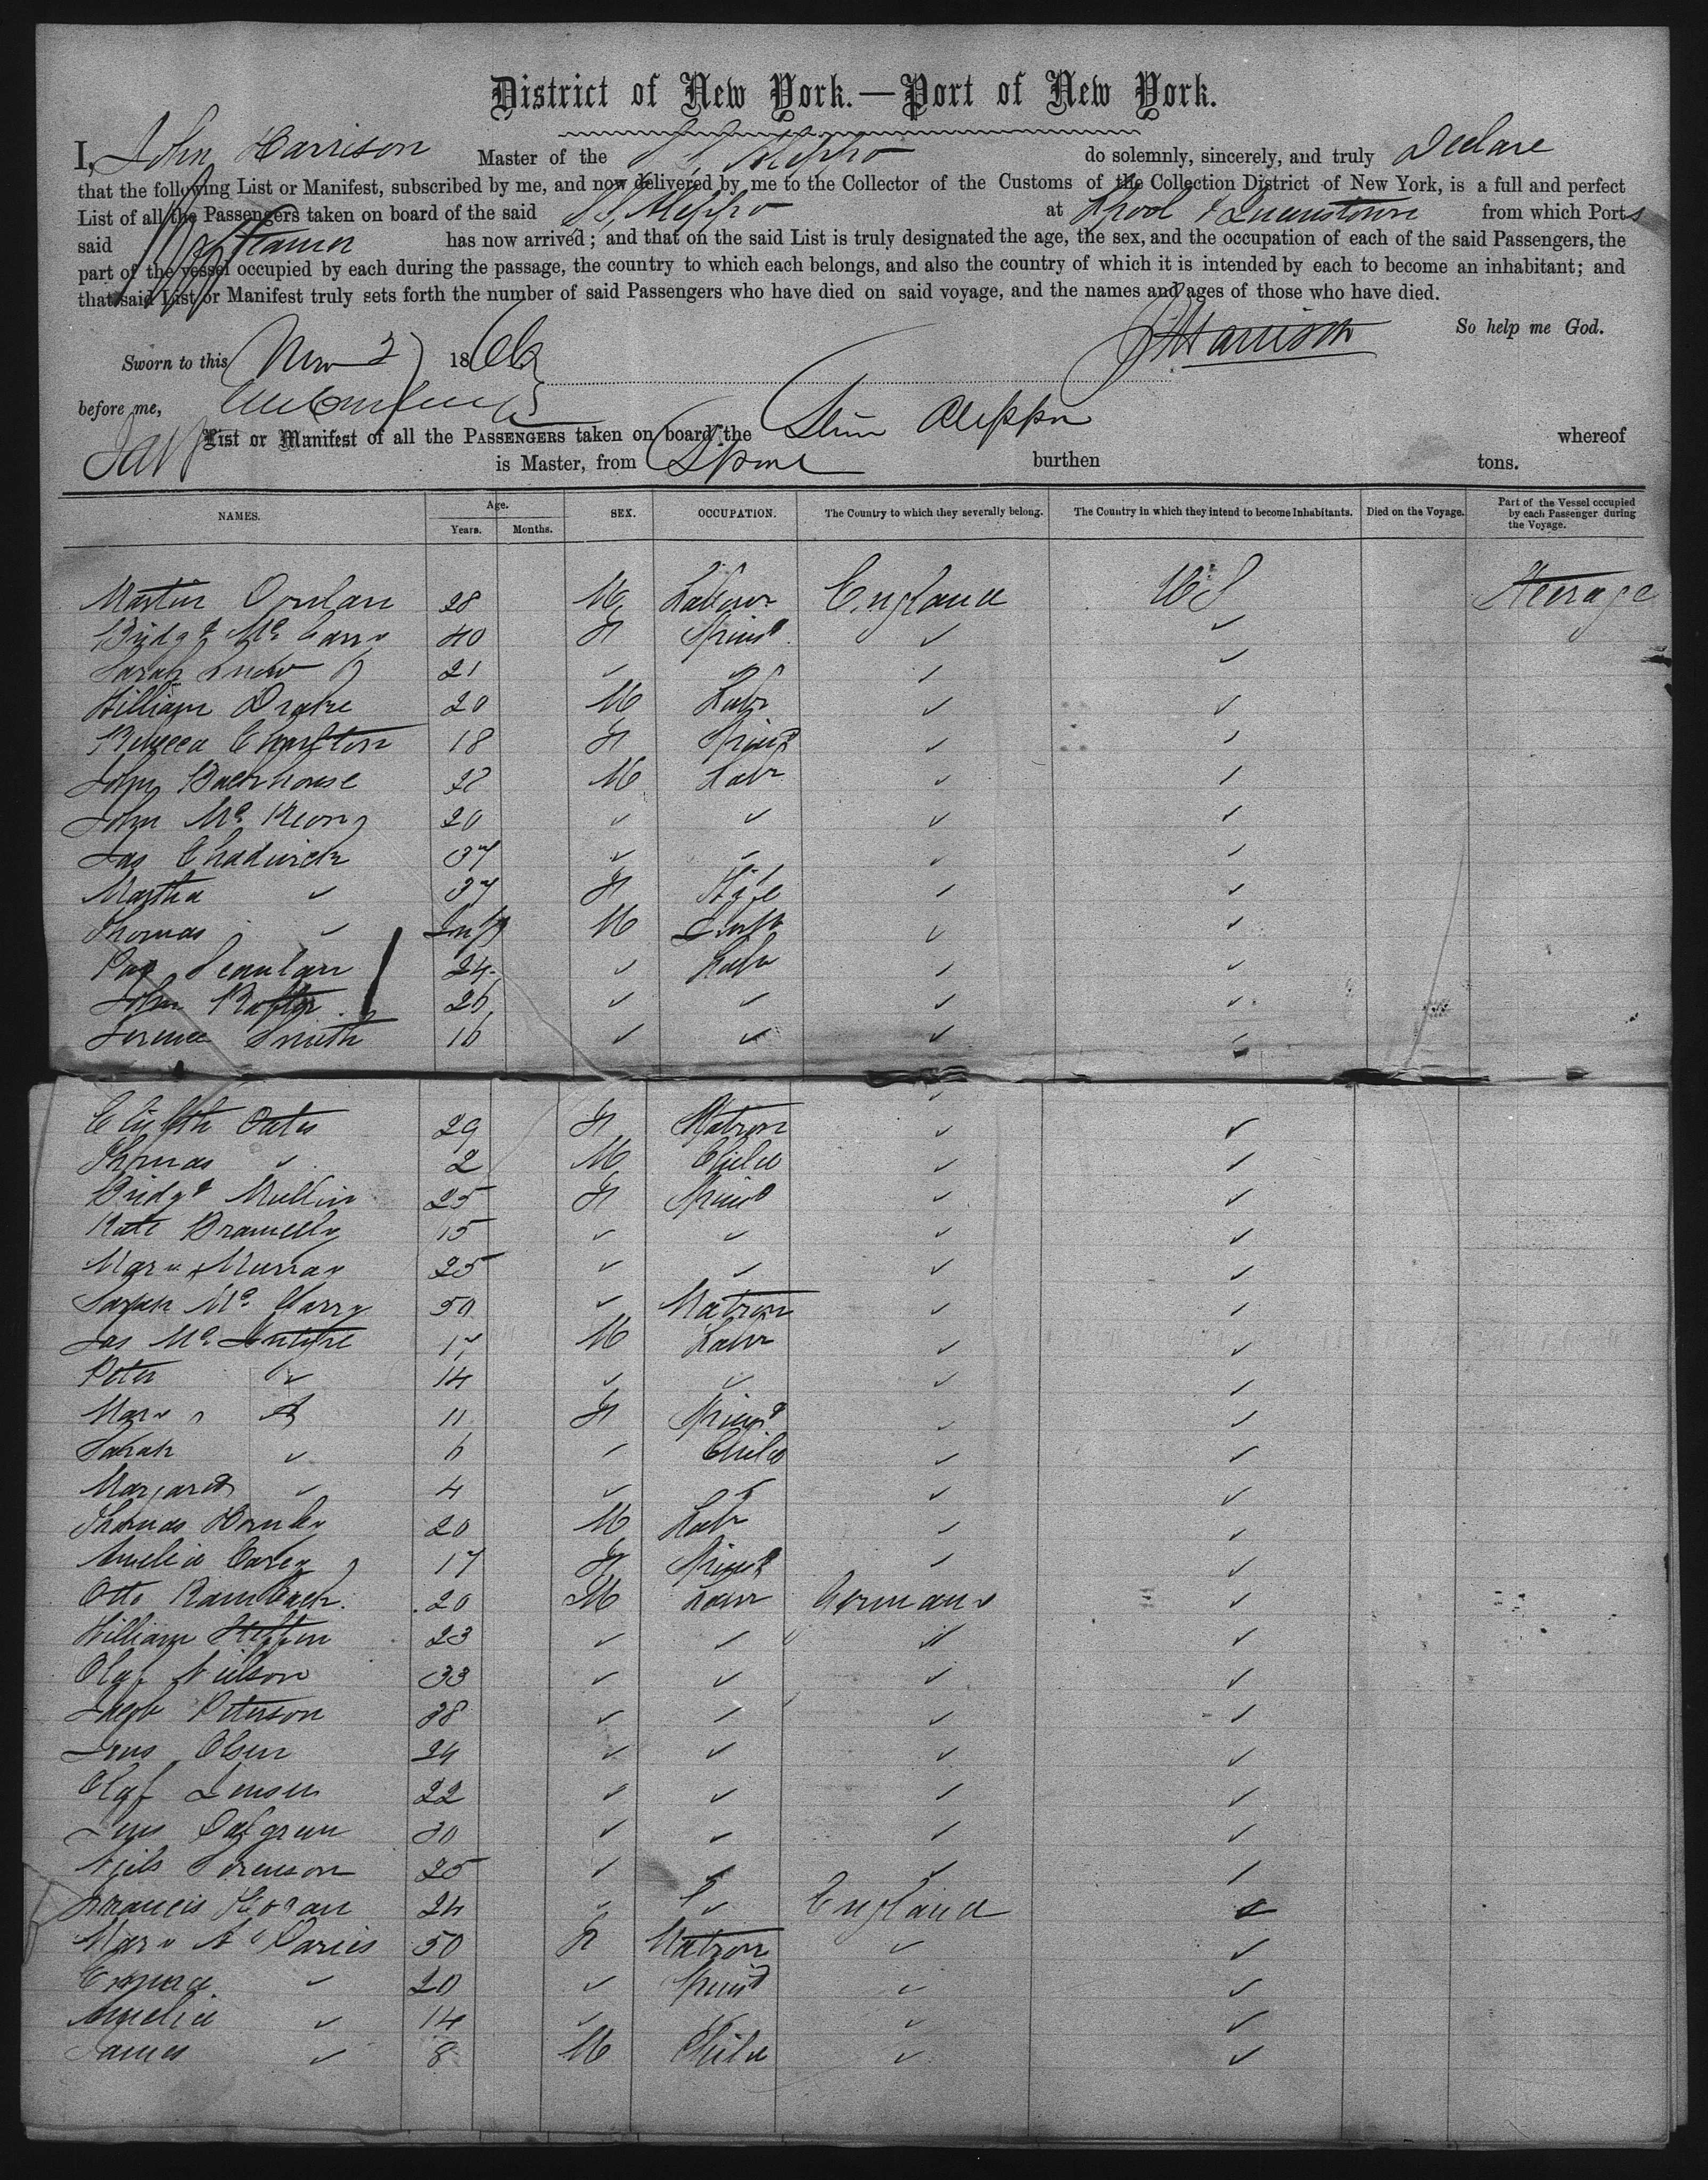 District of New York.—Port of New York.
I, John Harrison Master of the S.S. Aleppo do solemnly, sincerely, and truly Declare
that the following List or Manifest, subscribed by me, and now delivered by me to the Collector of the Customs of the Collection District of New York, is a full and perfect
List of all the Passengers taken on board of the said S.S. Aleppo at Lpool & Queenstown from which Ports
said Steamer has now arrived; and that on the said List is truly designated the age, the sex, and the occupation of each of the said Passengers, the
part of the vessel occupied by each during the passage, the country to which each belongs, and also the country of which it is intended by each to become an inhabitant; and
that said List or Manifest truly sets forth the number of said Passengers who have died on said voyage, and the names and ages of those who have died.
So help me God.
J Harrison
Sworn to this Nov 2 18
before me,
List or Manifest of all the PASSENGERS taken on board the Aleppo whereof
is Master, from Lpool burthen tons.
NAMES. Age. Years. Months. SEX. OCCUPATION. The Country to which they severally belong. The Country in which they intend to become Inhabitants. Died on the Voyage. Part of the Vessel occupied by each Passenger during the Voyage.
Martin 28 M Labour England US Steerage
Bridgt Mc Garry 40 F Spinst ✓ ✓
Sarah 21 ✓ ✓ ✓ ✓
William Drake 20 M Labr ✓ ✓
Rebecca Charlton 18 F Spinst ✓ ✓
John Backhouse 28 M Labr ✓ ✓
John Mc Keon 20 ✓ ✓ ✓ ✓
Jas Chadwick 37 ✓ ✓ ✓ ✓
Martha ✓ 37 F Wife ✓ ✓
Thomas ✓ Inft M Inft ✓ ✓
Pat Scanlan 24 ✓ Labr ✓ ✓
John Rafter 26 ✓ ✓ ✓ ✓
Terence Smith 16 ✓ ✓ ✓ ✓
Elizbth Oates 29 F Matron ✓ ✓
Thomas ✓ 2 M Child ✓ ✓
Bridgt Mullin 25 F Spinst ✓ ✓
Kate 15 ✓ ✓ ✓ ✓
Mary Murray 25 ✓ ✓ ✓ ✓
Sarah Mc Garry 50 ✓ Matron ✓ ✓
Jas Mc Intyre 17 M Labr ✓ ✓
Peter ✓ 14 ✓ ✓ ✓ ✓
Mary 11 F Spinst ✓ ✓
Sarah ✓ 6 ✓ Child ✓ ✓
Margaret ✓ 4 ✓ ✓ ✓ ✓
Thomas 20 M Labr ✓ ✓
Amelia Carey 17 F Spinst ✓ ✓
Otto Rambach 20 M Labr Germany ✓
William 23 ✓ ✓ ✓ ✓
Olaf Nielson 33 ✓ ✓ ✓ ✓
Jacob Peterson 38 ✓ ✓ ✓ ✓
Jens Olsen 24 ✓ ✓ ✓ ✓
Olaf Jensen 22 ✓ ✓ ✓ ✓
Jens Dalgreen 30 ✓ ✓ ✓ ✓
Niels Sorenson 25 ✓ ✓ ✓ ✓
Francis Hogan 24 ✓ ✓ England ✓
Mary A Davies 50 F Matron ✓ ✓
Emma ✓ 20 ✓ Spinst ✓ ✓
Amelia ✓ 14 ✓ ✓ ✓ ✓
James ✓ 8 M Child ✓ ✓